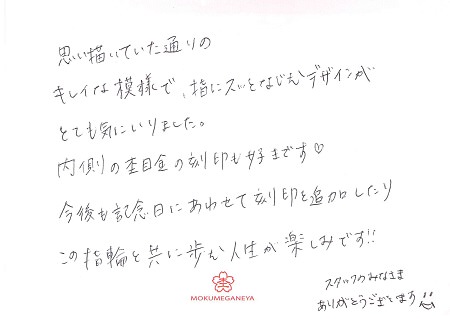 思い描いていた通りの
キレイな模様で、指にスッとなじむデザインが
とても気にいりました。
内側の杢目金の刻印も好きです♡
今後も記念日にあわせて刻印を追加したり
この指輪と共に歩む人生が楽しみです!!
スタッフのみなさま
ありがとうございます
MOKUMEGANEYA